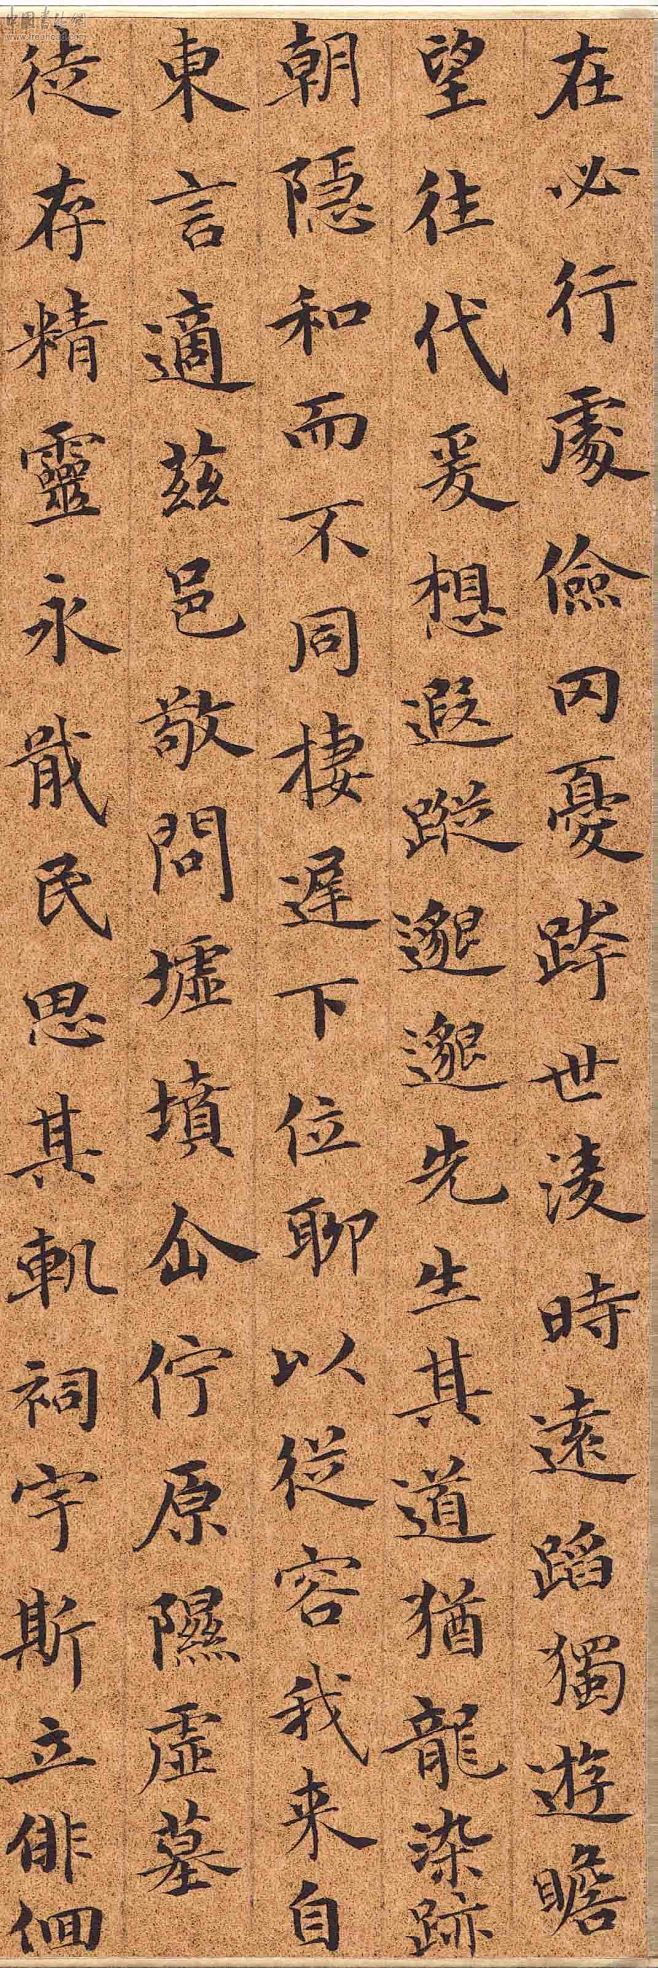 中國書法網
www.freehead.com
在必行處儉罔憂跨世淩時遠蹈獨遊瞻
望往代爰想遐蹤邈邈先生其道猶龍染跡
朝隱和而不同棲遲下位聊以從容我来自
東言適茲邑敬問墟墳企佇原隰虛墓
徒存精靈永戢民思其軌祠宇斯立俳佪